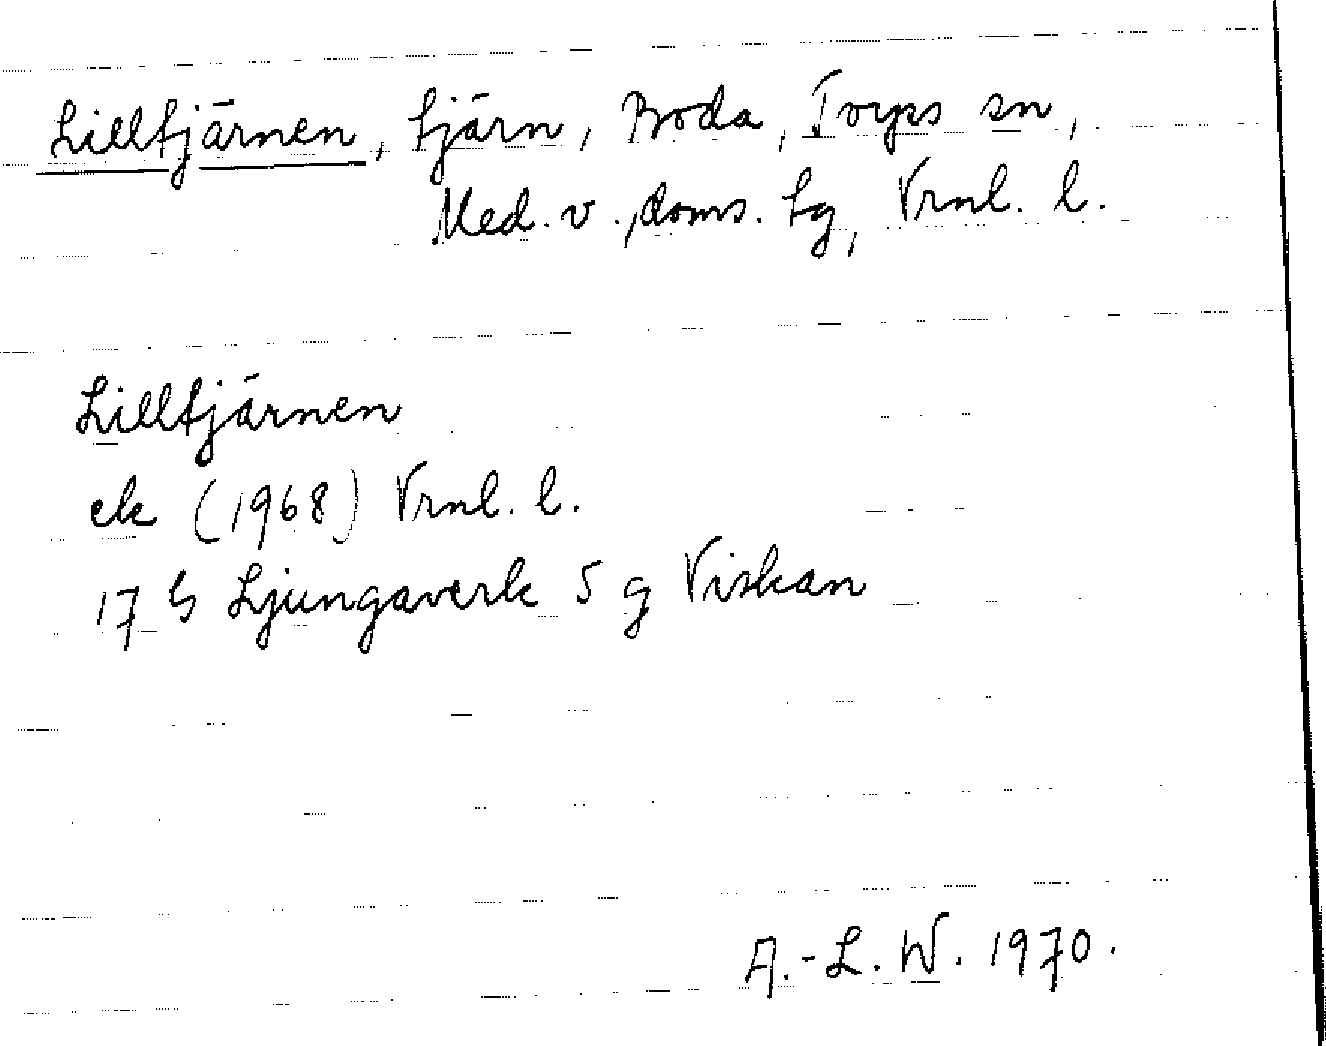 Lilltjärnen, tjärn, Boda, Torps sn,
Med. v., doms. tg, Vrnl. l.
Lilltjärnen
ek (1968) Vrnl. l.
17 G Ljungaverk 5 g Viskan
A.-L. W. 1970.